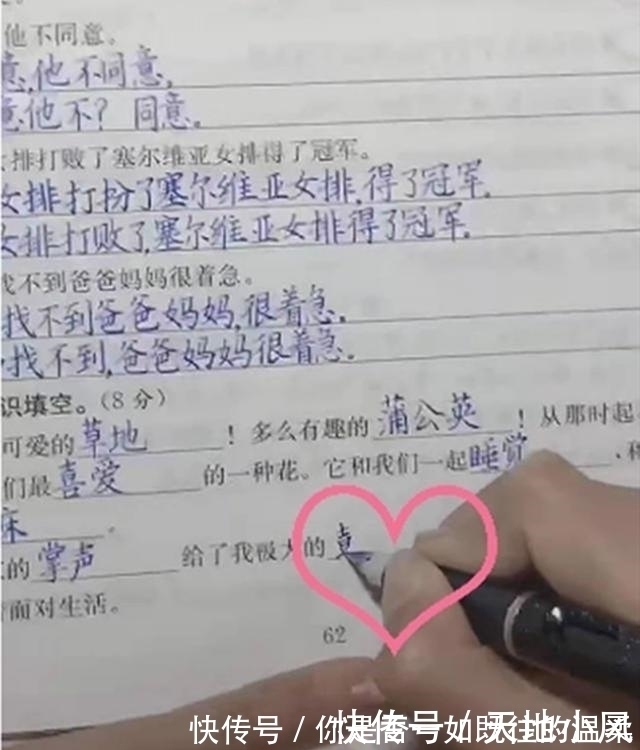 他不同意。
意,他不同意,
意他不? 同意。
女排打败了塞尔维亚女排得了冠军。
女排打扮了塞尔维亚女排,得了冠军.
女排打败了,塞尔维亚女排得了冠军.
找不到爸爸妈妈很着急。
找不到爸爸妈妈,很着急.
找不到,爸爸妈妈很着急.
识填空。(8分)
可爱的草地!多么有趣的蒲公英!从那时起
们最喜爱的一种花。它和我们一起睡觉,和
床。
的掌声给了我极大的
面对生活。
62
快传号 / 你是否如既往的温柔
快传号 / 天地小屋